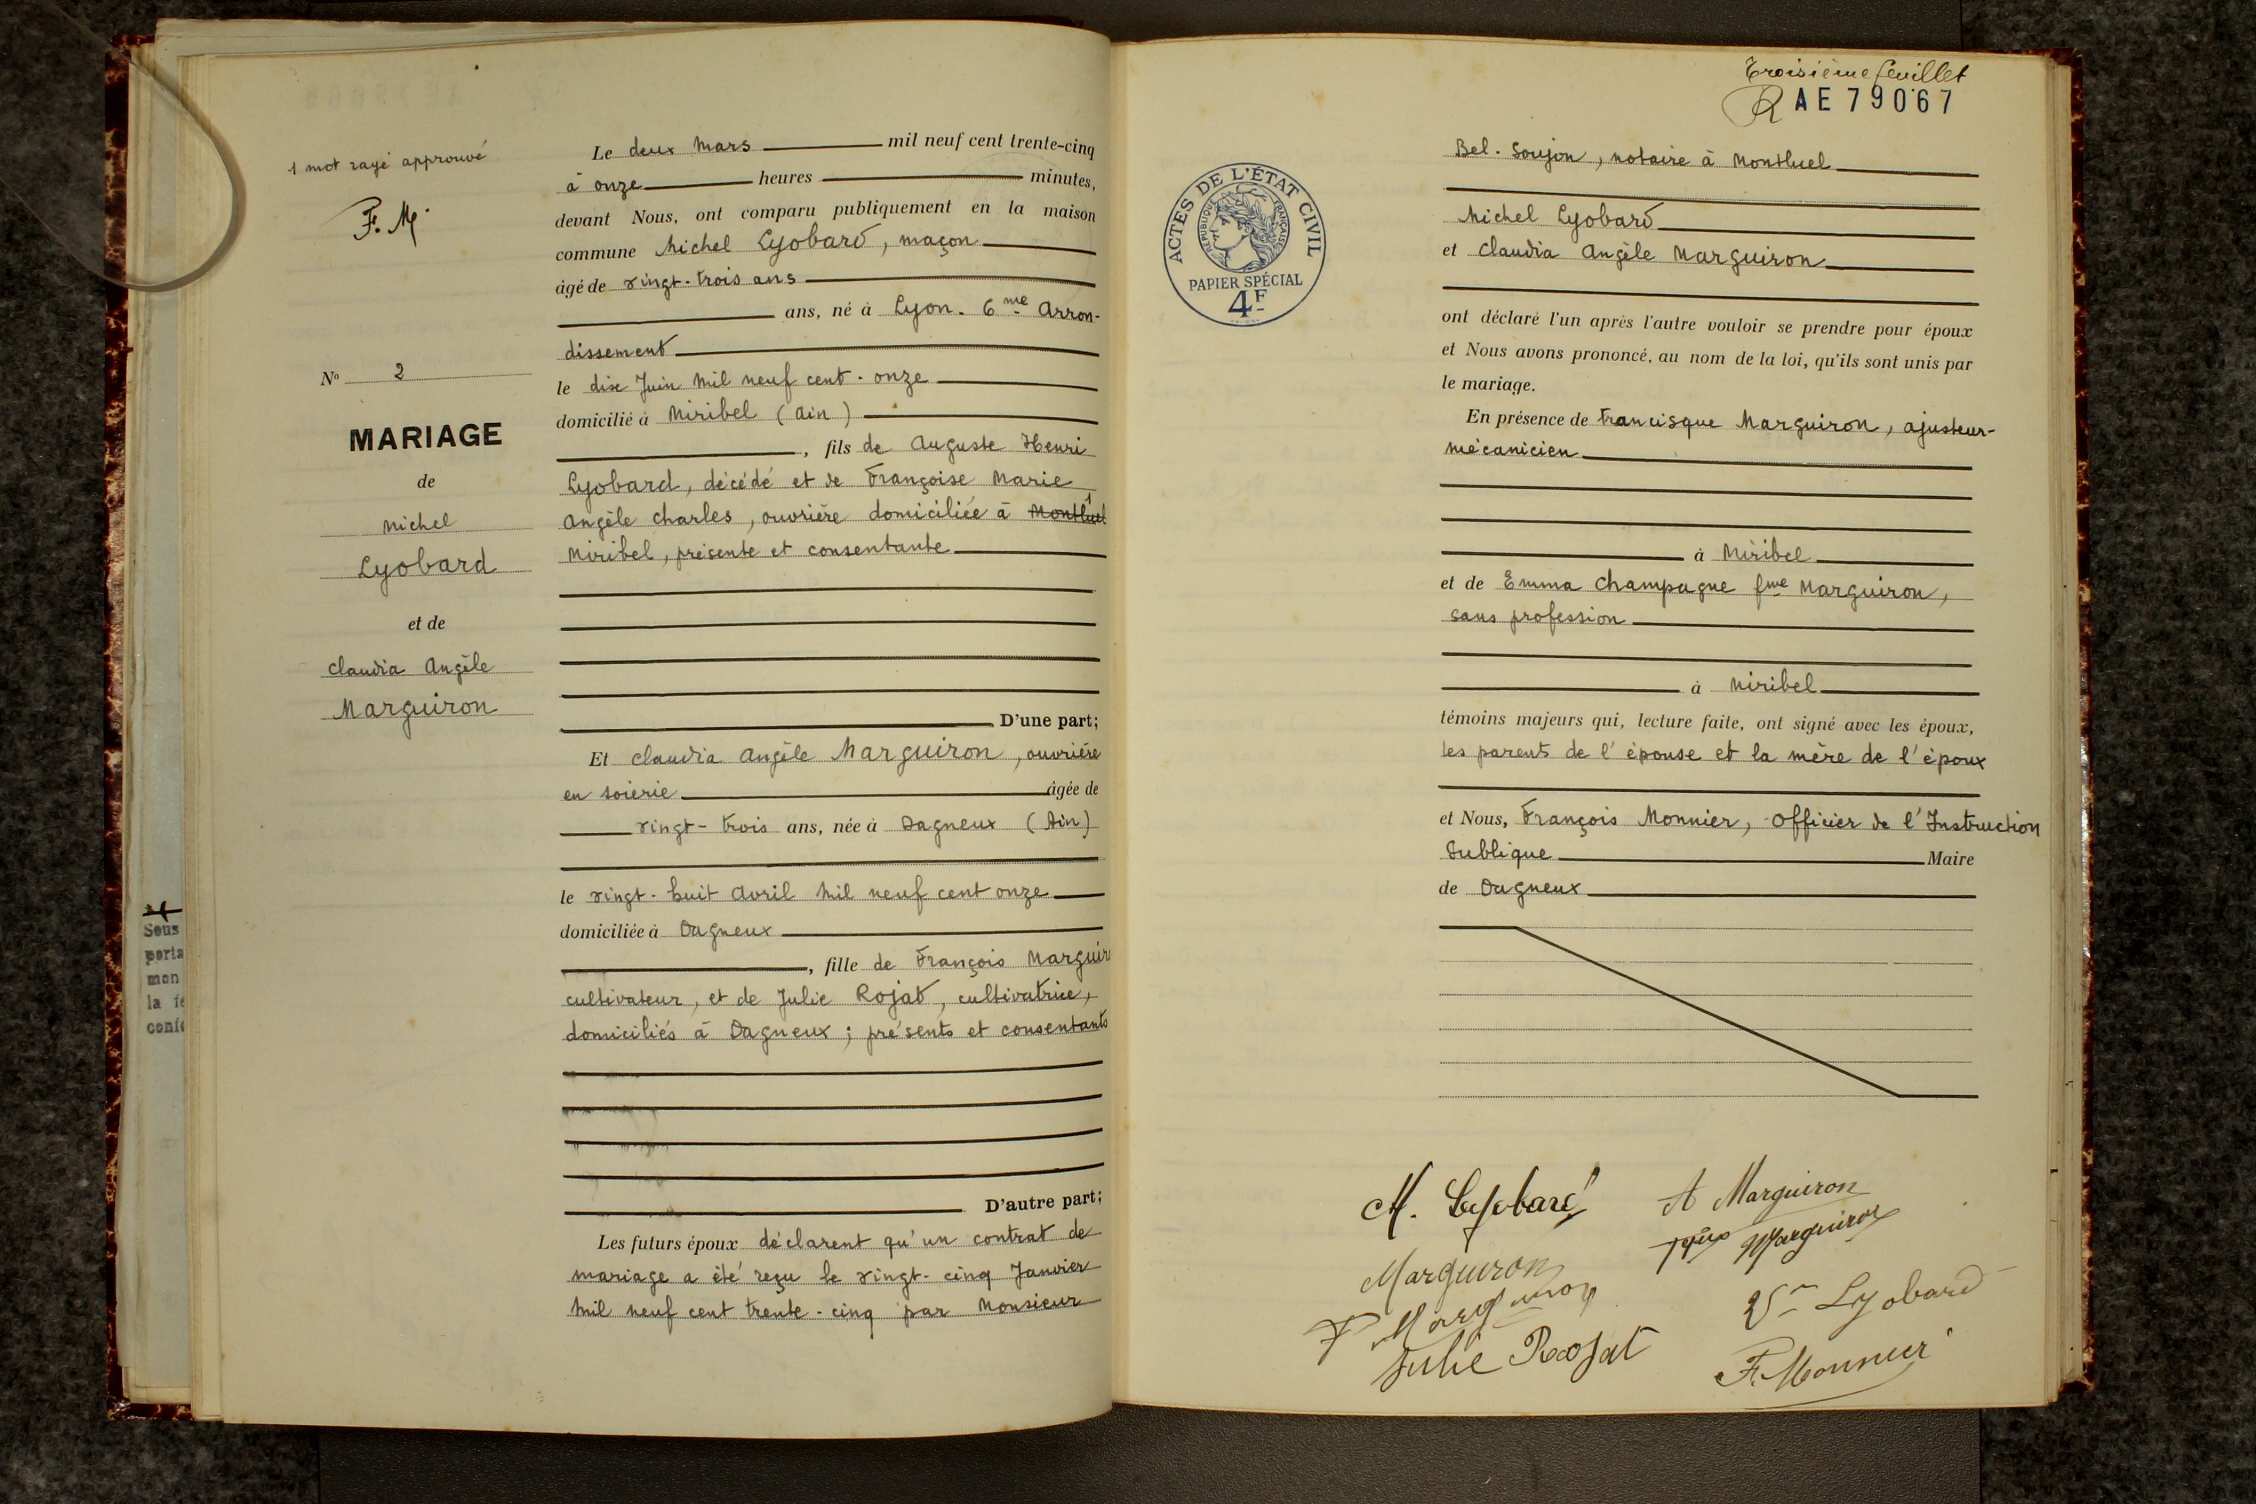 1 mot rayé approuvé
F. M.
Nº 2
MARIAGE
de
Michel
Lyobard
et de
Claudia Angèle
Marguiron
Le deux Mars mil neuf cent trente-cinq
à onze heures minutes,
devant Nous, ont comparu publiquement en la maison
commune Michel Lyobard, maçon
âgé de vingt-trois ans
ans, né à Lyon. 6me Arron-
dissement
le dix Juin Mil neuf cent-onze
domicilié à Miribel (Ain)
, fils de Auguste Henri
Lyobard, décédé et de Françoise Marie
Angèle Charles, ouvrière domiciliée à Montluel
Miribel, présente et consentante
D'une part;
Et Claudia Angèle Marguiron, ouvrière
en soierie âgée de
vingt-trois ans, née à Dagneux (Ain)
le vingt-huit Avril Mil neuf cent onze
domiciliée à Dagneux
, fille de François Marguir
cultivateur, et de Julie Rojat, cultivatrice,
domiciliés à Dagneux; présents et consentants
D'autre part;
Les futurs époux déclarent qu'un contrat de
mariage a été reçu le vingt-cinq Janvier
Mil neuf cent trente-cinq par Monsieur
Sous
porta
mon
la fe
confo
Troisième feuillet
AE79067
ACTES DE L'ÉTAT CIVIL
RÉPUBLIQUE FRANÇAISE
PAPIER SPÉCIAL
4F
Bel-Soujon, notaire à Montluel
Michel Lyobard
et Claudia Angèle Marguiron
ont déclaré l'un après l'autre vouloir se prendre pour époux
et Nous avons prononcé, au nom de la loi, qu'ils sont unis par
le mariage.
En présence de Francisque Marguiron, ajusteur-
mécanicien
à Miribel
et de Emma Champagne fme Marguiron,
sans profession
à Miribel
témoins majeurs qui, lecture faite, ont signé avec les époux,
les parents de l'épouse et la mère de l'époux
et Nous, François Monnier, Officier de l'Instruction
Publique Maire
de Dagneux
M. Lyobard
A Marguiron
Marguiron
Marguiron
F Marguiron
Vve Lyobard
Julie Rojat
F. Monnier